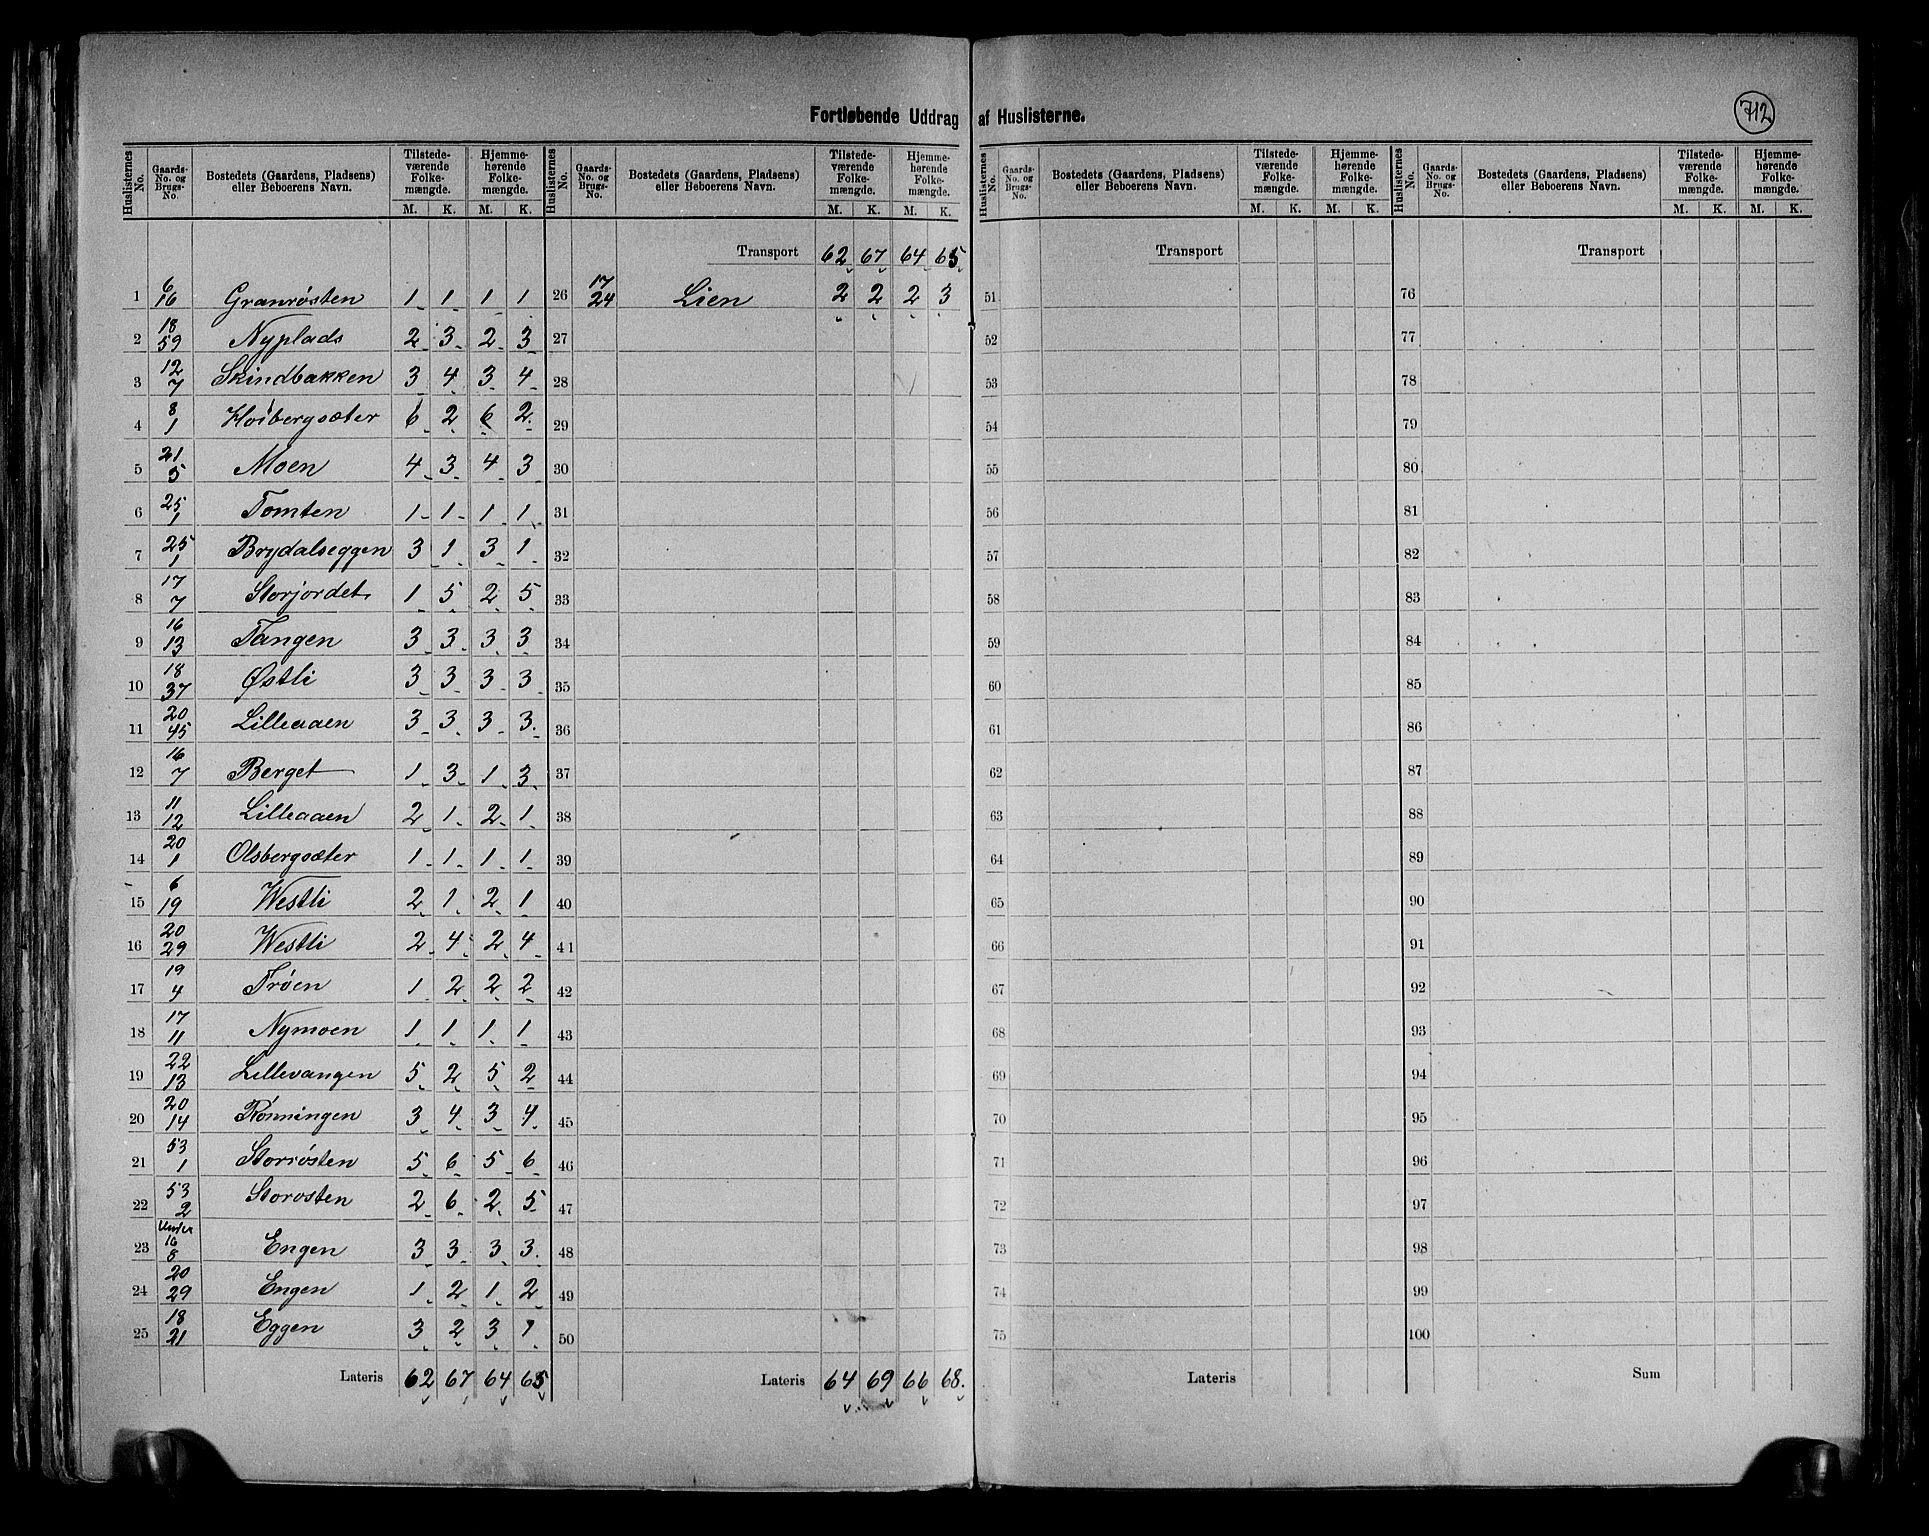 Fortløbende Uddrag af Huslisterne.
712
Huslisternes No. Gaards-No. og Brugs-No. Bostedets (Gaardens, Pladsens) eller Beboerens Navn. Tilstedeværende Folkemængde. M. K. Hjemmehørende Folkemængde. M. K.
1 6/16 Granrösten 1 1 1 1
2 18/59 Nyplads 2 3 2 3
3 12/7 Skindbakken 3 4 3 4
4 8/1 Höibergsæter 6 2 6 2
5 21/5 Moen 4 3 4 3
6 25/1 Tomten 1 1 1 1
7 25/1 Brydalseggen 3 1 3 1
8 17/7 Storjordet 1 5 2 5
9 16/13 Tangen 3 3 3 3
10 18/37 Østli 3 3 3 3
11 20/45 Lilleaaen 3 3 3 3
12 16/7 Berget 1 3 1 3
13 11/12 Lilleaaen 2 1 2 1
14 20/1 Olsbergsæter 1 1 1 1
15 6/19 Westli 2 1 2 1
16 20/29 Westli 2 4 2 4
17 19/4 Tröen 1 2 2 2
18 17/11 Nymoen 1 1 1 1
19 22/13 Lillevangen 5 2 5 2
20 20/14 Rönningen 3 4 3 4
21 53/1 Storrösten 5 6 5 6
22 53/2 Storosten 2 6 2 5
23 Under 16/8 Engen 3 3 3 3
24 20/29 Engen 1 2 1 2
25 18/21 Eggen 3 2 3 1
Lateris 62 67 64 65
Huslisternes No. Gaards-No. og Brugs-No. Bostedets (Gaardens, Pladsens) eller Beboerens Navn. Tilstedeværende Folkemængde. M. K. Hjemmehørende Folkemængde. M. K.
Transport 62 67 64 65
26 17/24 Lien 2 2 2 3
27
28
29
30
31
32
33
34
35
36
37
38
39
40
41
42
43
44
45
46
47
48
49
50
Lateris 64 69 66 68.
Huslisternes No. Gaards-No. og Brugs-No. Bostedets (Gaardens, Pladsens) eller Beboerens Navn. Tilstedeværende Folkemængde. M. K. Hjemmehørende Folkemængde. M. K.
Transport
51
52
53
54
55
56
57
58
59
60
61
62
63
64
65
66
67
68
69
70
71
72
73
74
75
Lateris
Huslisternes No. Gaards-No. og Brugs-No. Bostedets (Gaardens, Pladsens) eller Beboerens Navn. Tilstedeværende Folkemængde. M. K. Hjemmehørende Folkemængde. M. K.
Transport
76
77
78
79
80
81
82
83
84
85
86
87
88
89
90
91
92
93
94
95
96
97
98
99
100
Sum